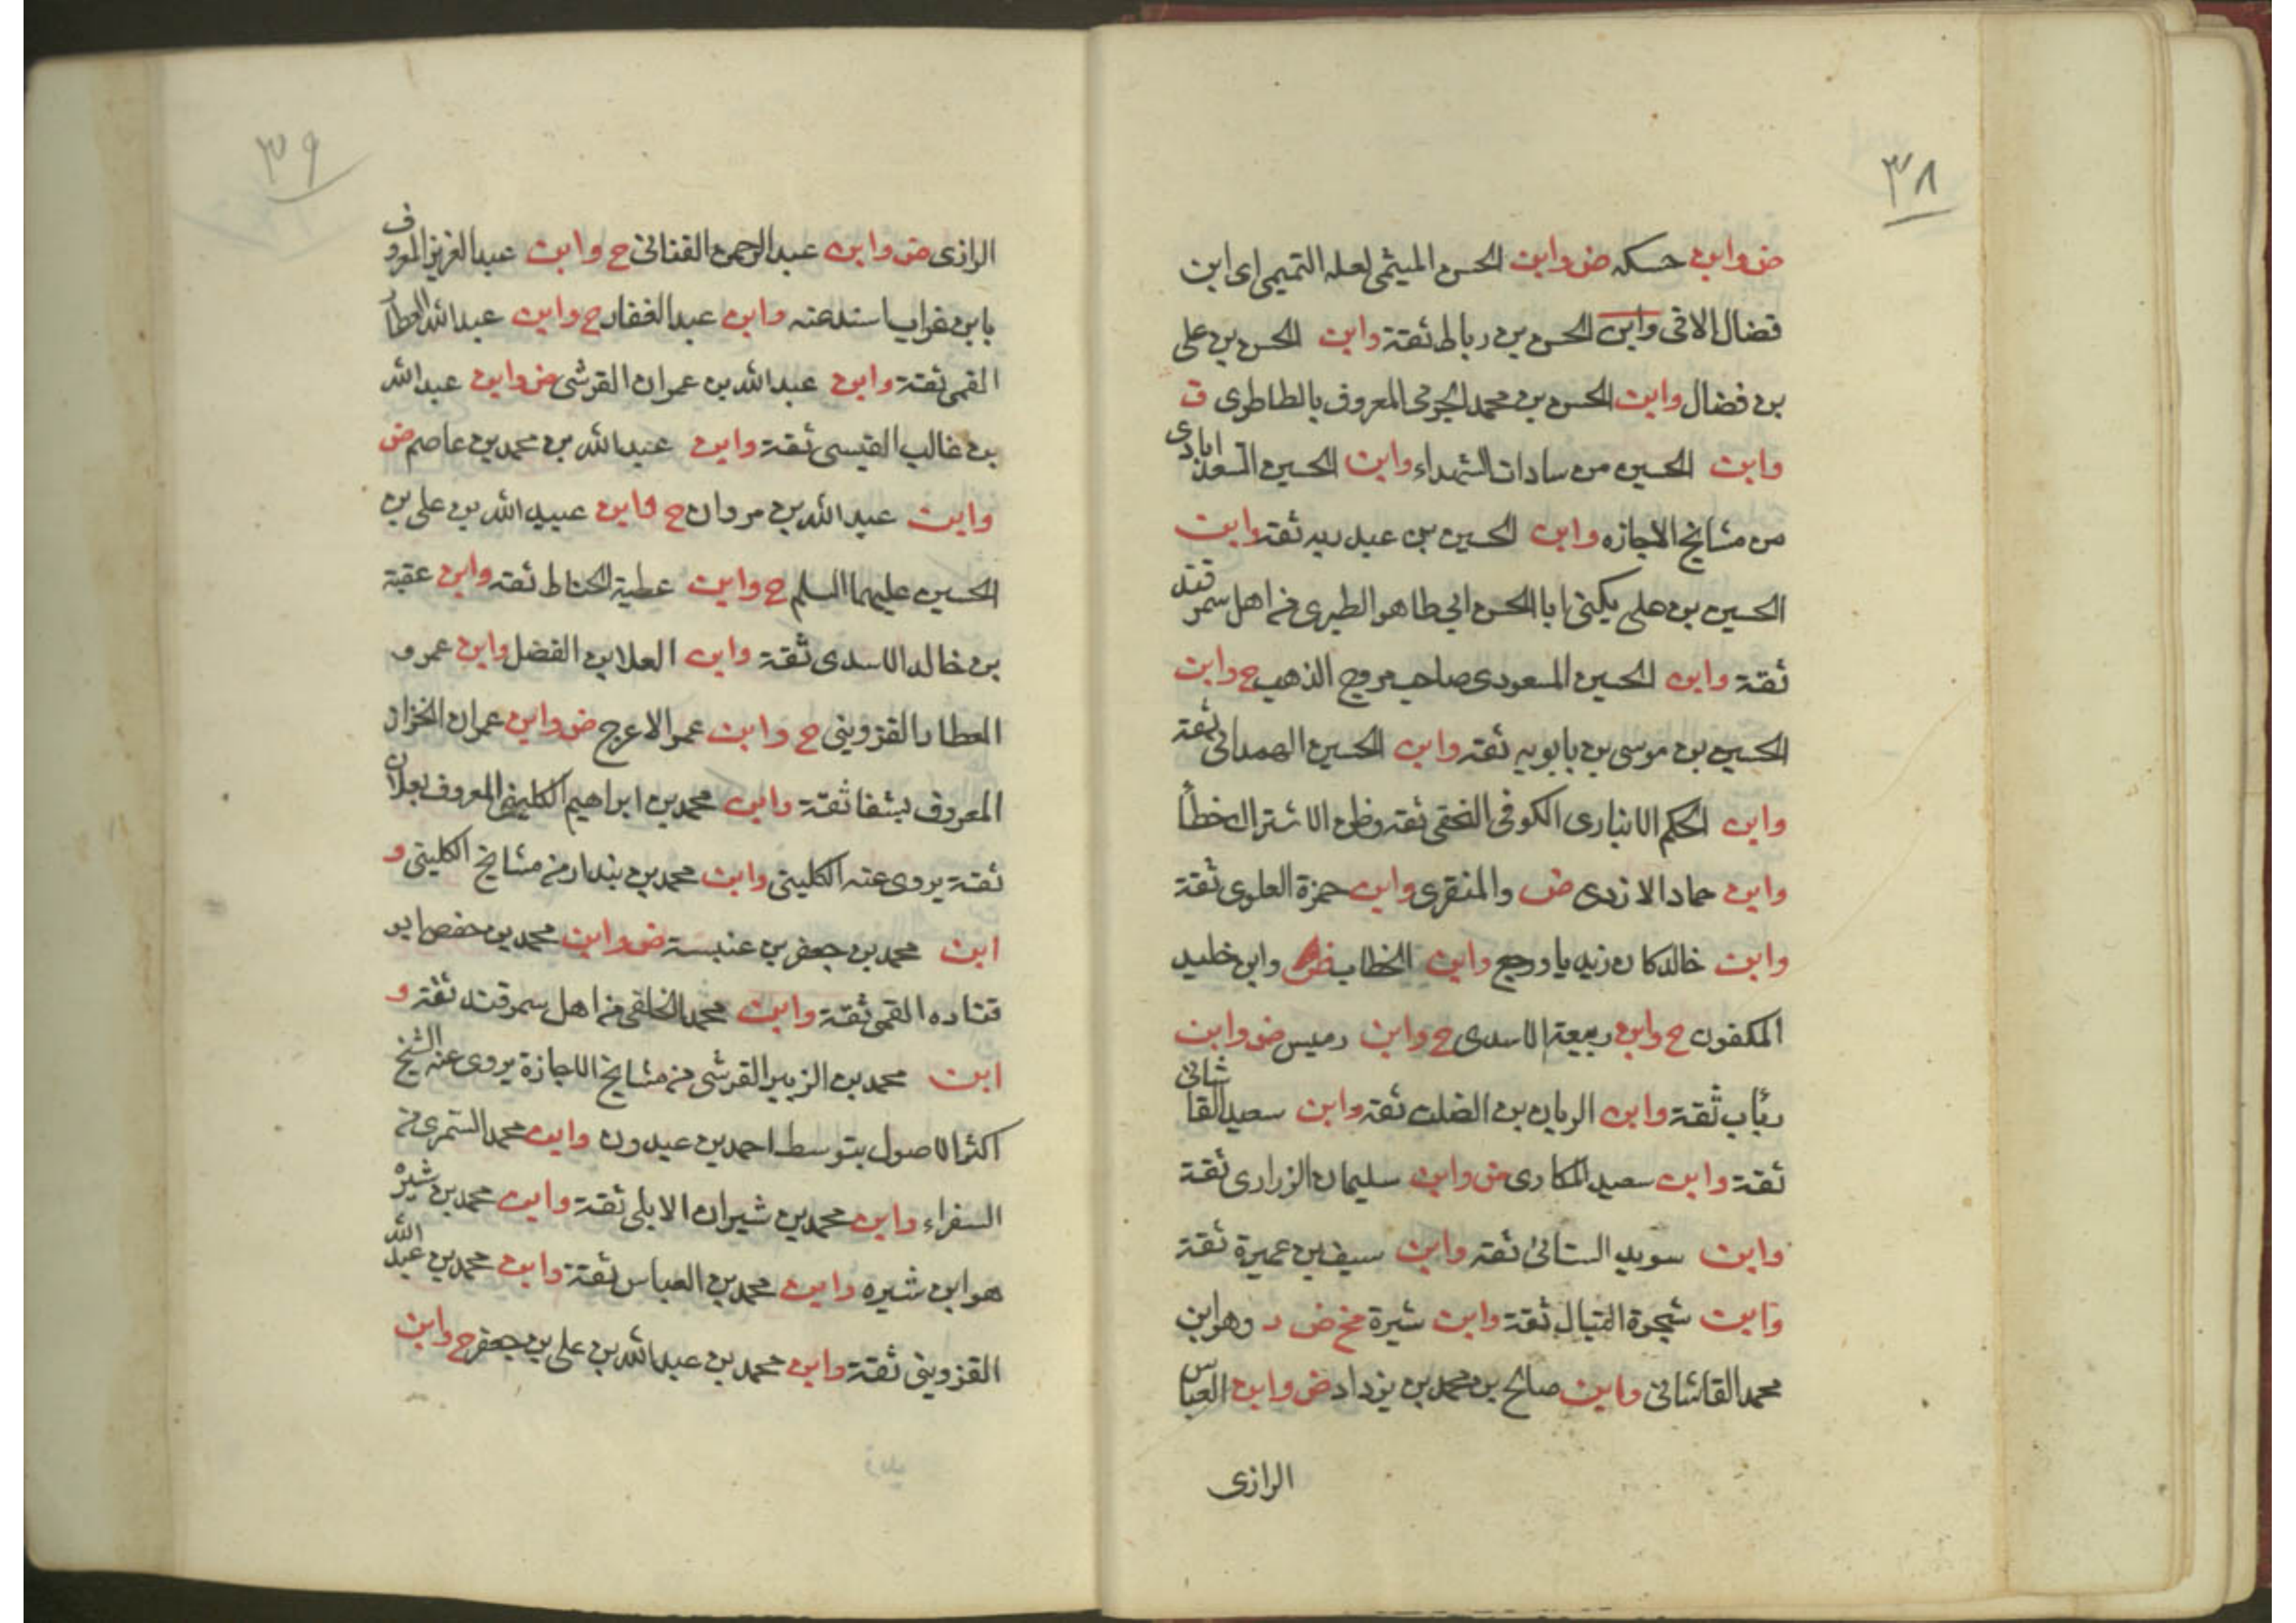 ٣٨
ض وابن حسكه ض وابن الحسن الميثمى لعله التميمى اى ابن
فضال الاتى وابن الحسن بن رباط ثقة وابن الحسن بن على
بن فضال وابن الحسن بن محمد الجرمى المعروف بالطاطرى ق
وابن الحسين من سادات الشهداء وابن الحسين السعدابادى
من مشايخ الاجازه وابن الحسين بن عبد ربه ثقة وابن
الحسين بن على يكنى ابا الحسن ابى طاهر الطبرى من اهل سمرقند
ثقة وابن الحسين المسعودى صاحب مروج الذهب ح وابن
الحسين بن موسى بن بابويه ثقة وابن الحسين الهمدانى ثقة
وابن الحكم الانبارى الكوفى النخعى ثقة وظن الاشتراك خطأ
وابن حماد الازدى ض والمنقرى وابن حمزة العلوى ثقة
وابن خالد كان زيديا ورجع وابن الخطاب ض وابن خليد
المكفون ح وابن ربيعة الاسدى ح وابن رميس ض وابن
رئاب ثقة وابن الريان بن الصلت ثقة وابن سعيد القاشانى
ثقة وابن سعيد المكارى ض وابن سليمان الزرارى ثقة
وابن سويد السائى ثقة وابن سيف بن عميرة ثقة
وابن شجرة ثقة وابن شيرة ض د وهو ابن
محمد القاشانى وابن صالح بن محمد بن يزداد ض وابن العباس
الرازى
٣٩
الرازى ض وابن عبد الرحمن القنانى ح وابن عبد العزيز المعروف
بابن غراب اسند عنه وابن عبد الغفار ح وابن عبد الله العطار
القمى ثقة وابن عبد الله بن عمران القرشى ض وابن عبد الله
بن غالب القيسى ثقة وابن عبد الله بن محمد بن عاصم ض
وابن عبد الله بن مروان ح وابن عبيد الله بن على بن
الحسين عليهما السلم ح وابن عطية الحناط ثقة وابن عقبة
بن خالد الاسدى ثقة وابن العلا بن الفضل وابن عمرو
العطار القزوينى ح وابن عمر الاعرج ض وابن عمران الخزاز
المعروف بشفا ثقة وابن محمد بن ابراهيم الكلينى المعروف بعلان
ثقة يروى عنه الكلينى وابن محمد بن بندار من مشايخ الكلينى و
ابن محمد بن جعفر بن عنبسة ض وابن محمد بن حفص ابو
قتاده القمى ثقة وابن محمد الخلقى من اهل سمرقند ثقة و
ابن محمد بن الزبير القرشى من مشايخ الاجازة يروى عنه الشيخ
اكثر الاصول بتوسط احمد بن عبدون وابن محمد السمرى من
السفراء وابن محمد بن شيران الابلى ثقة وابن محمد بن شيره
هو ابن شيره وابن محمد بن العباس ثقة وابن محمد بن عبد الله
القزوينى ثقة وابن محمد بن عبد الله بن على بن جعفر ح وابن